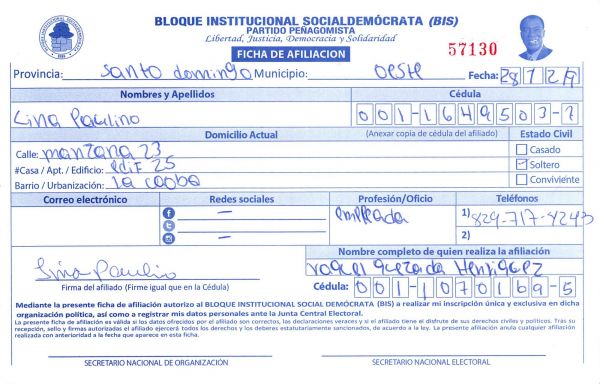 BLOQUE INSTITUCIONAL SOCIALDEMÓCRATA (BIS)
PARTIDO PEÑAGOMISTA
Libertad, Justicia, Democracia y Solidaridad
FICHA DE AFILIACION
57130
Provincia: santo domingo Municipio: oeste Fecha: 28/12/19
Nombres y Apellidos Cédula
Lina Paulino 001-1649503-7
Domicilio Actual (Anexar copia de cédula del afiliado) Estado Civil
Calle: manzana 23 Casado
#Casa / Apt. / Edificio: edif 25 Soltero
Barrio / Urbanización: La caoba Conviviente
Correo electrónico Redes sociales Profesión/Oficio Teléfonos
— empleada 1) 829-717-4243
— 2)
Nombre completo de quien realiza la afiliación
Lina Paulino raquel quezada Henriquez
Firma del afiliado (Firme igual que en la Cédula) Cédula: 001-1070169-5
Mediante la presente ficha de afiliación autorizo al BLOQUE INSTITUCIONAL SOCIAL DEMÓCRATA (BIS) a realizar mi inscripción única y exclusiva en dicha
organización política, así como a registrar mis datos personales ante la Junta Central Electoral.
La presente ficha de afiliación es válida si los datos ofrecidos por el afiliado son correctos, las declaraciones veraces y si el afiliado tiene el disfrute de sus derechos civiles y políticos. Tras su
recepción, sello y firmas autorizadas el afiliado ejercerá todos los derechos y los deberes estatutariamente sancionados, de acuerdo a la ley. La presente afiliación anula cualquier afiliación
realizada con anterioridad a la fecha que aparece en esta ficha.
SECRETARIO NACIONAL DE ORGANIZACIÓN SECRETARIO NACIONAL ELECTORAL